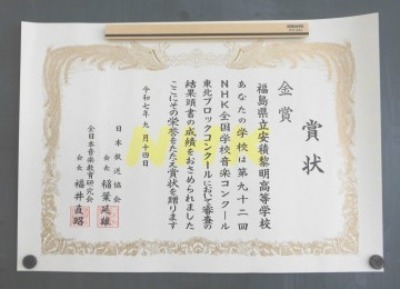 賞状
金賞
福島県立安積黎明高等学校
あなたの学校は第九十二回
NHK全国学校音楽コンクール
東北ブロックコンクールにおいて審査の
結果頭書の成績をおさめられました
ここにその栄誉をたたえ賞状を贈ります
令和七年九月十四日
日本放送協会
会長 稲葉延雄
全日本音楽教育研究会
会長 福井直昭